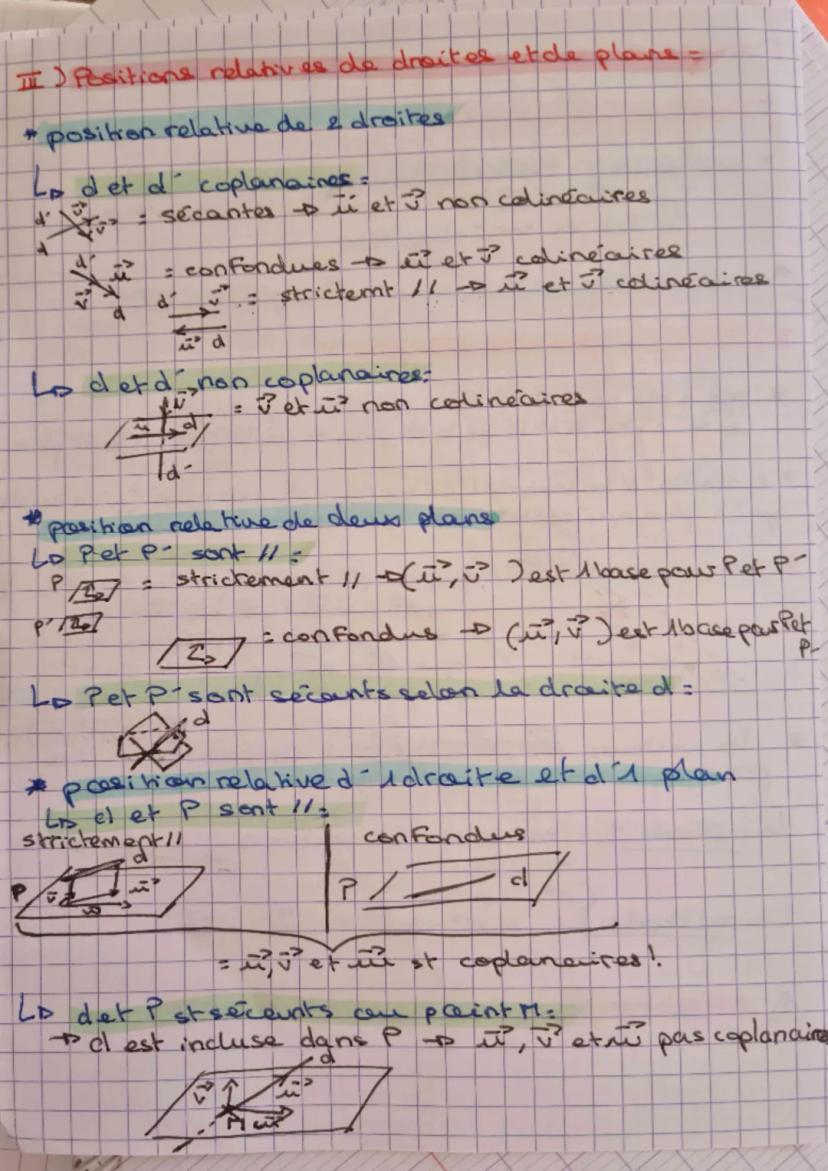 III) Positions relatives de droites et de plans =
* position relative de 2 droites
↳ d et d' coplanaires =
d' v⃗ u⃗ d = sécantes → u⃗ et v⃗ non colinéaires
d' u⃗ v⃗ d = confondues → u⃗ et v⃗ colinéaires
d' v⃗ u⃗ d = strictemt // → u⃗ et v⃗ colinéaires
↳ d et d' non coplanaires =
v⃗ u⃗ d d' = v⃗ et u⃗ non colinéaires
* position relative de deux plans
↳ P et P' sont // =
P P' = strictement // → (u⃗, v⃗) est 1 base pour P et P'
= confondus → (u⃗, v⃗) est 1 base pour P et P'
↳ P et P' sont sécants selon la droite d =
d
* position relative d'1 droite et d'1 plan
↳ d et P sont // =
strictement // confondus
P d v⃗ u⃗ w P d
= u⃗, v⃗ et w⃗ st coplanaires !
↳ d et P st sécants au point M =
→ d est incluse dans P → u⃗, v⃗ et w⃗ pas coplanaire
d v⃗ u⃗ M w⃗